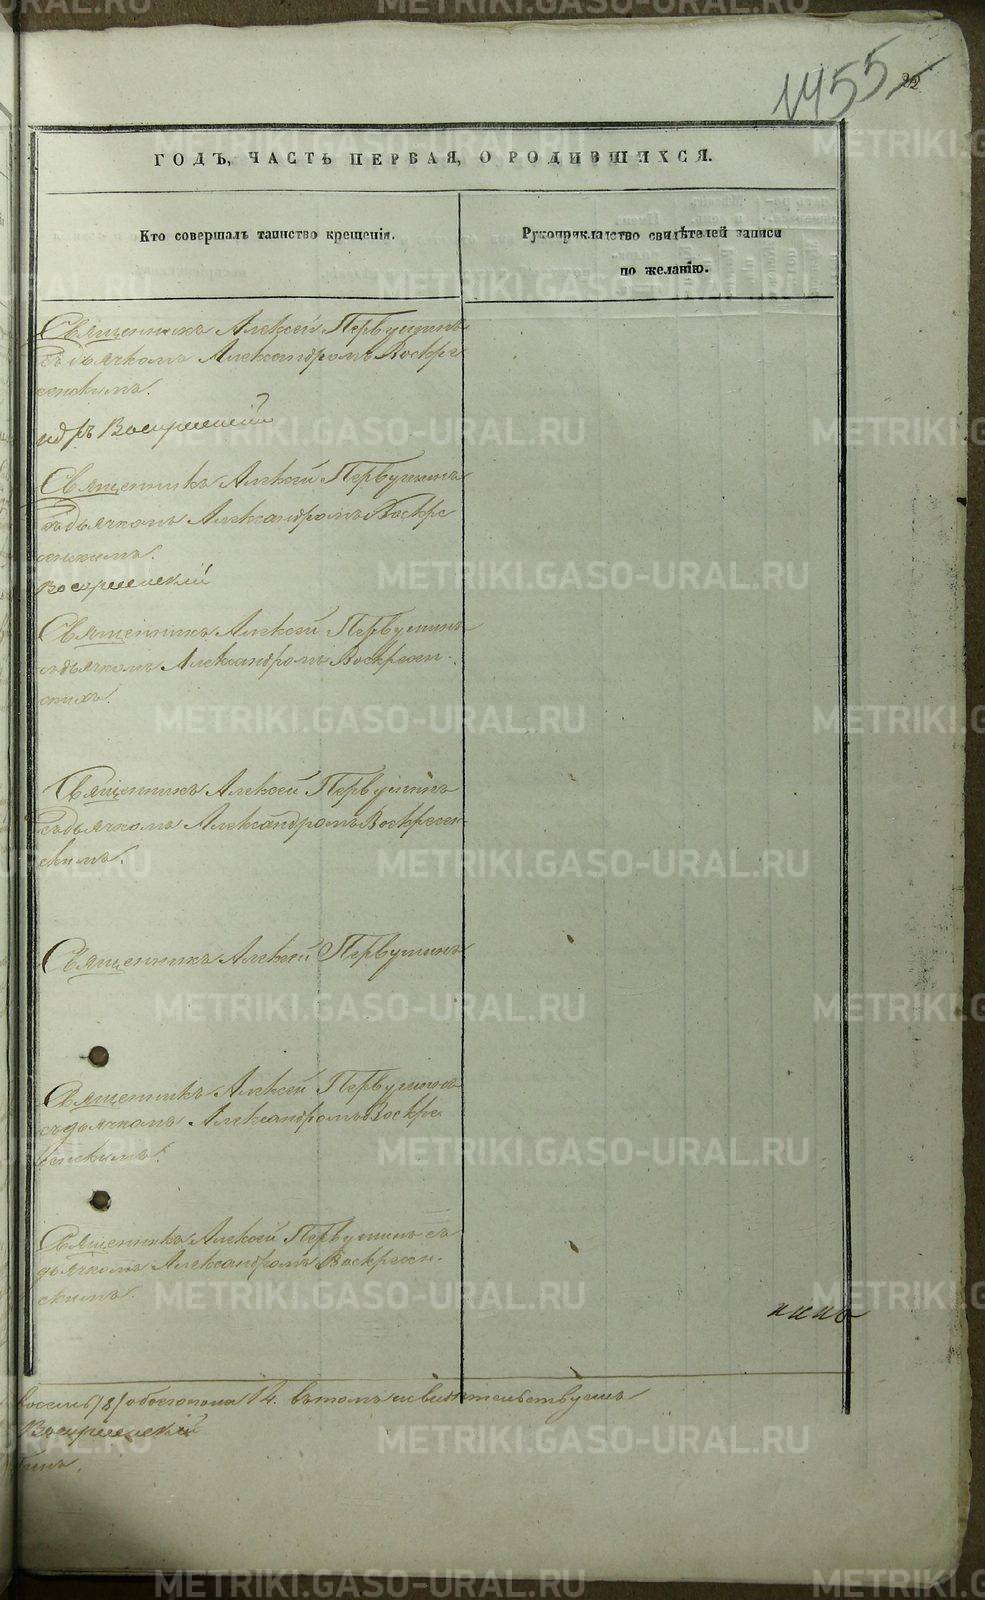 1455
22
ГОДЪ, ЧАСТЬ ПЕРВАЯ, О РОДИВШИХСЯ.
Кто совершалъ таинство крещенія.
Рукоприкладство свидѣтелей записи
по желанію.
Священникъ Алексей Первушинъ
съ дьячкомъ Александромъ Воскре
сенскимъ.
Воскресенскій
Священникъ Алексей Первушинъ
съ дьячкомъ Александромъ Воскре
сенскимъ.
Воскресенскій
Священникъ Алексей Первушинъ
съ дьячкомъ Александромъ Воскресен-
скимъ.
Священникъ Алексей Первушинъ
съ дьячкомъ Александромъ Воскресен-
скимъ.
Священникъ Алексей Первушинъ
Священникъ Алексей Первушинъ
съ дьячкомъ Александромъ Воскре
сенскимъ.
Священникъ Алексей Первушинъ съ
дьячкомъ Александромъ Воскресен-
скимъ.
восемь (8) обоегопола 14. въ томъ свидетельствуемъ
Воскресенскій
METRIKI.GASO-URAL.RU